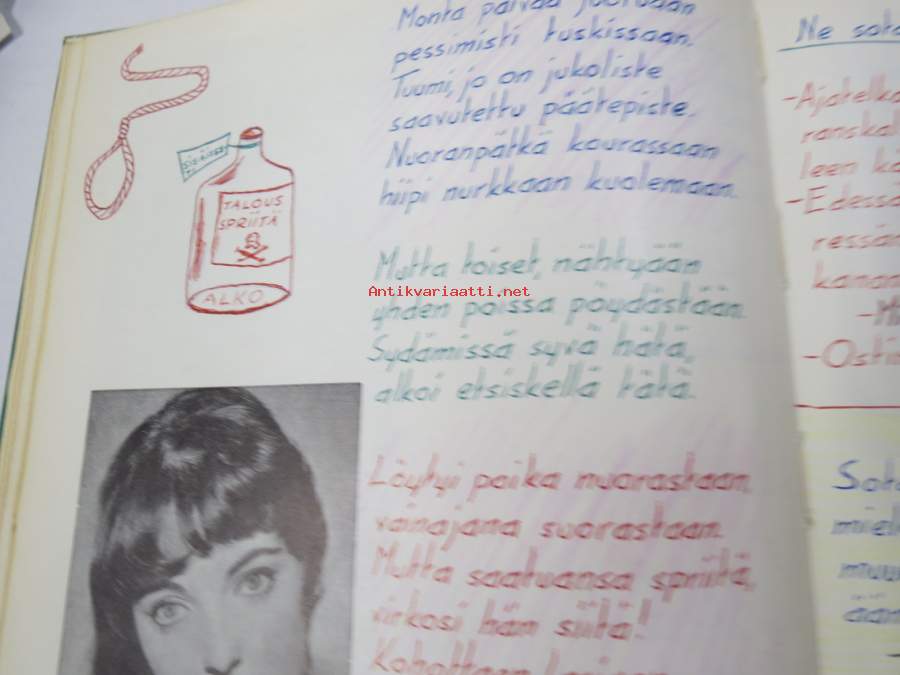 Monta päivää
pessimisti tuskissaan.
Tuumi, jo on jukoliste
saavutettu päätepiste.
Nuoranpätkä kourassaan
hiipi nurkkaan kuolemaan.
Mutta toiset, nähtyään
yhden poissa pöydästään.
Sydämissä syvä hätä,
alkoi etsiskellä tätä.
Löytyi poika nuorastaan
vainajana suorastaan.
Mutta saatuansa spriitä,
virkosi hän siitä!
TALOUS
SPRIITÄ
ALKO
Antikvariaatti.net
Ne sota
-Ajatelka
ranskal
leen kä
-Edessä
ressän
kanan
-Mi
-Ostin
Sota
miell
muu
ään